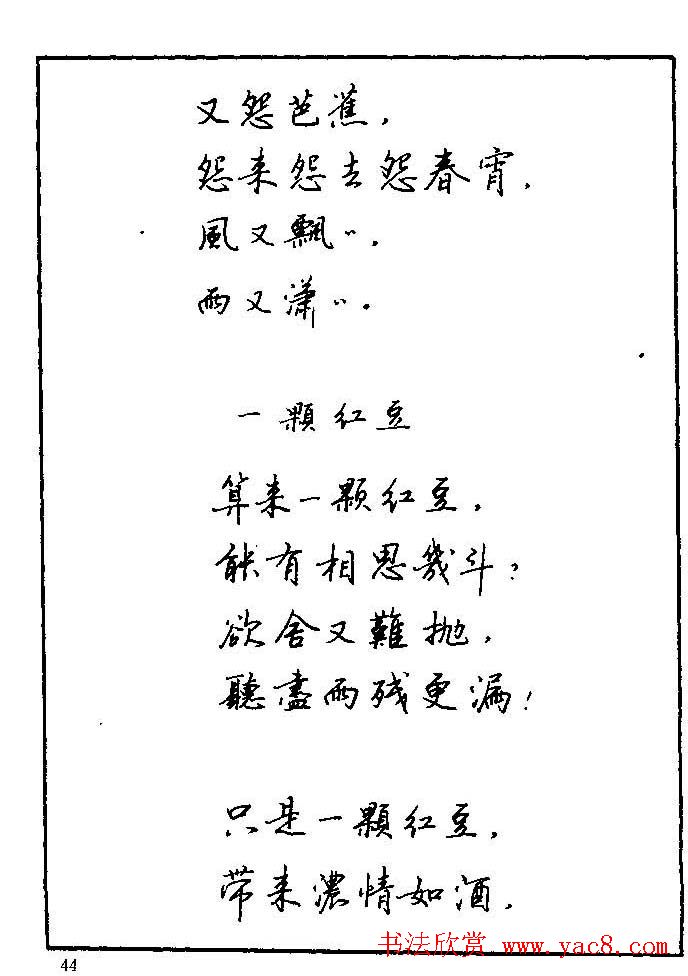 又怨芭蕉，
怨来怨去怨春宵，
風又飄〃，
雨又潇〃。
一顆红豆
算来一颗红豆，
能有相思幾斗？
欲舍又難抛，
聽盡雨残更漏！
只是一顆红豆，
带来濃情如酒，
书法欣赏 www.yac8.com
44